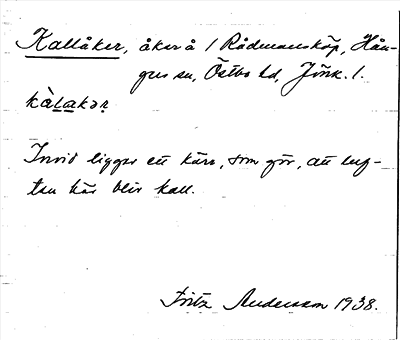 Kallåker, åker å 1 Rådmansköp, Hån-
ger sn, Östbo hd, Jönk. l.
kàlakər
Invid ligger ett kärr, som gör, att luf-
ten här blir kall.
Fritz Andersson 1938.